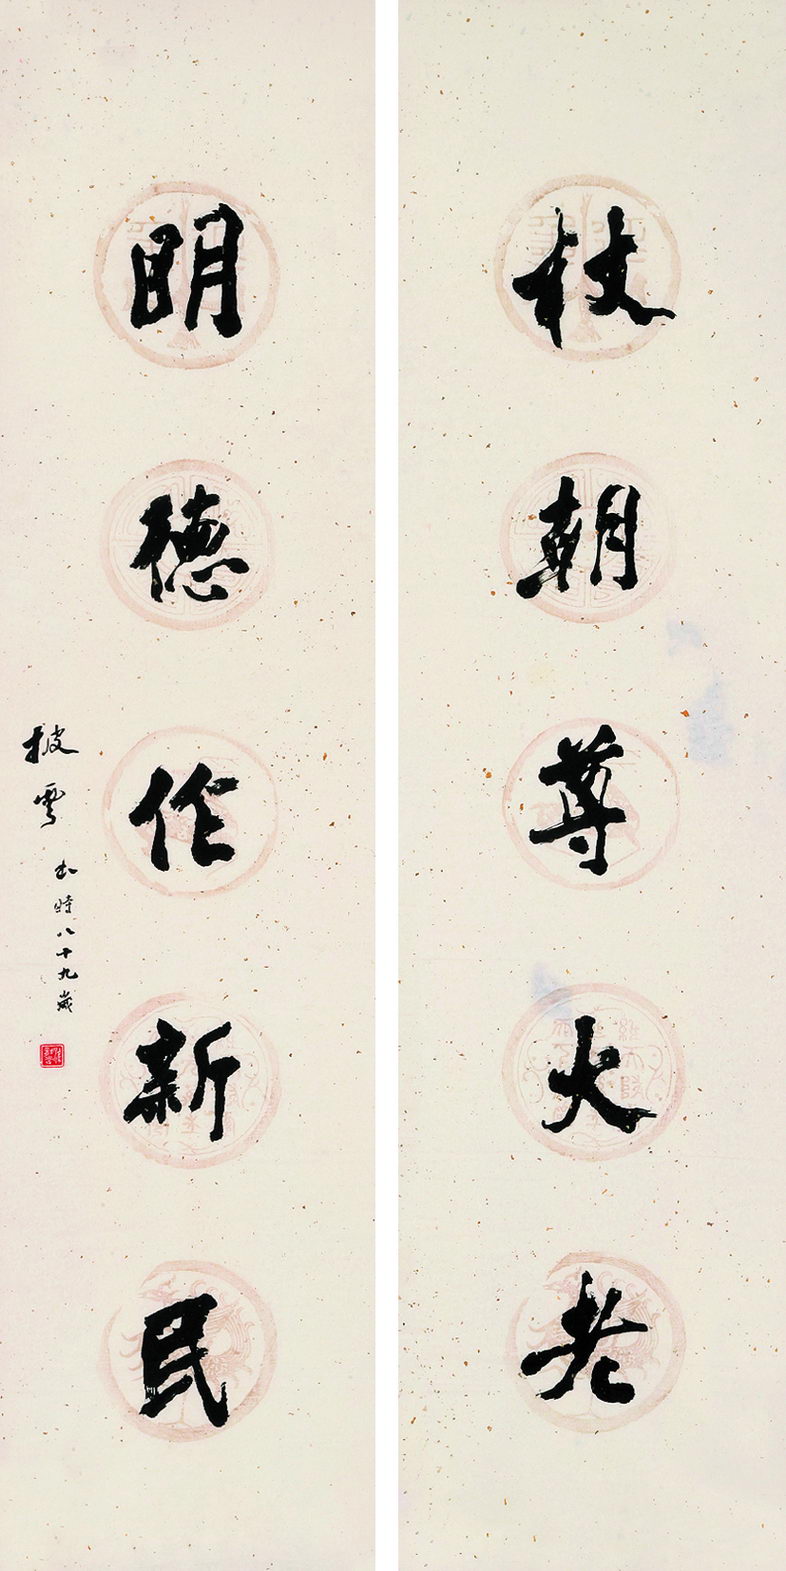 杖朝尊大老
明德作新民
披雲書時八十九歲